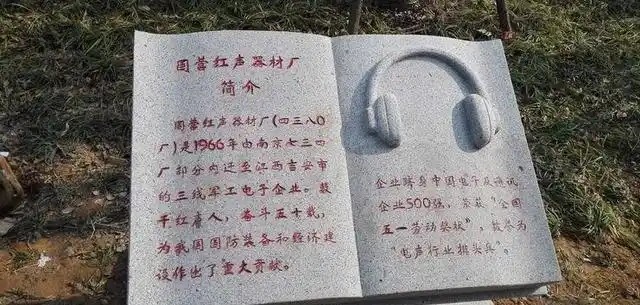 国营红声器材厂
简介
国营红声器材厂(四三八〇
厂)是1966年由南京七三四
厂部分内迁至江西吉安市
的三线军工电子企业。数
千红声人，奋斗五十载，
为我国国防装备和经济建
设作出了重大贡献。
企业跻身中国电子及通讯
企业500强，荣获“全国
五一劳动奖状”，被誉为
“电声行业排头兵”。